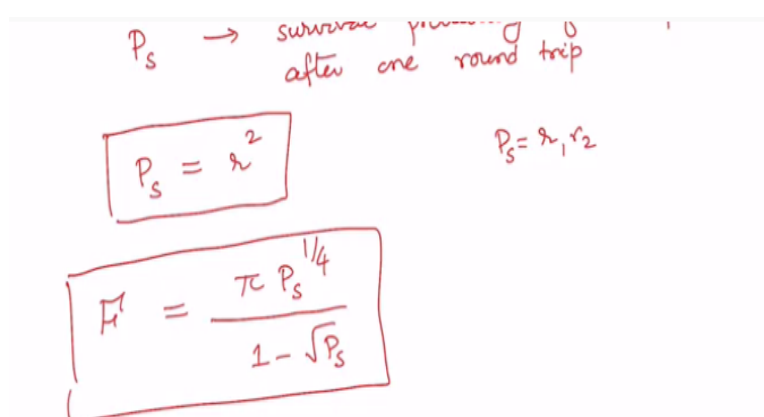 P_s → survival
after one round trip
P_s = r^2
P_s = r_1 r_2
F = π P_s^{1/4} / (1 - √P_s)